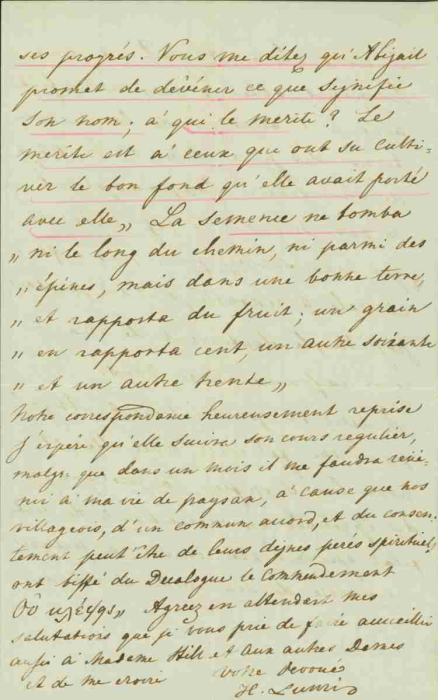 ses progrés. Vous me dites qu'Abigail
promet de dévénir ce que signifie
son nom; à qui le merite? Le
merite est à ceux que ont su culti-
ver le bon fond qu'elle avait porté
avec elle„ La semence ne tomba
„ ni le long du chemin, ni parmi des
„ épines, mais dans une bonne terre,
„ et rapporta du fruit; un grain
„ en rapporta cent, un autre soixante
„ et un autre trente„
Notre correspondance heureusement reprise
J'éspére qu'elle suivra son cours regulier,
que dans un mois il me faudra reve-
nir à ma vie de paysan, à cause que nos
villageois, d'un commun acord, et du consen-
tement peut être de leurs dignes perés spirituels,
ont biffé du Decalogue le Commendement
Οὐ κλέψῃς„ Agréez en attendant mes
salutations que je vous prie de faire accueillir
aussi à Madame Hill et aux autres Dames
et de me croire votre Devoué